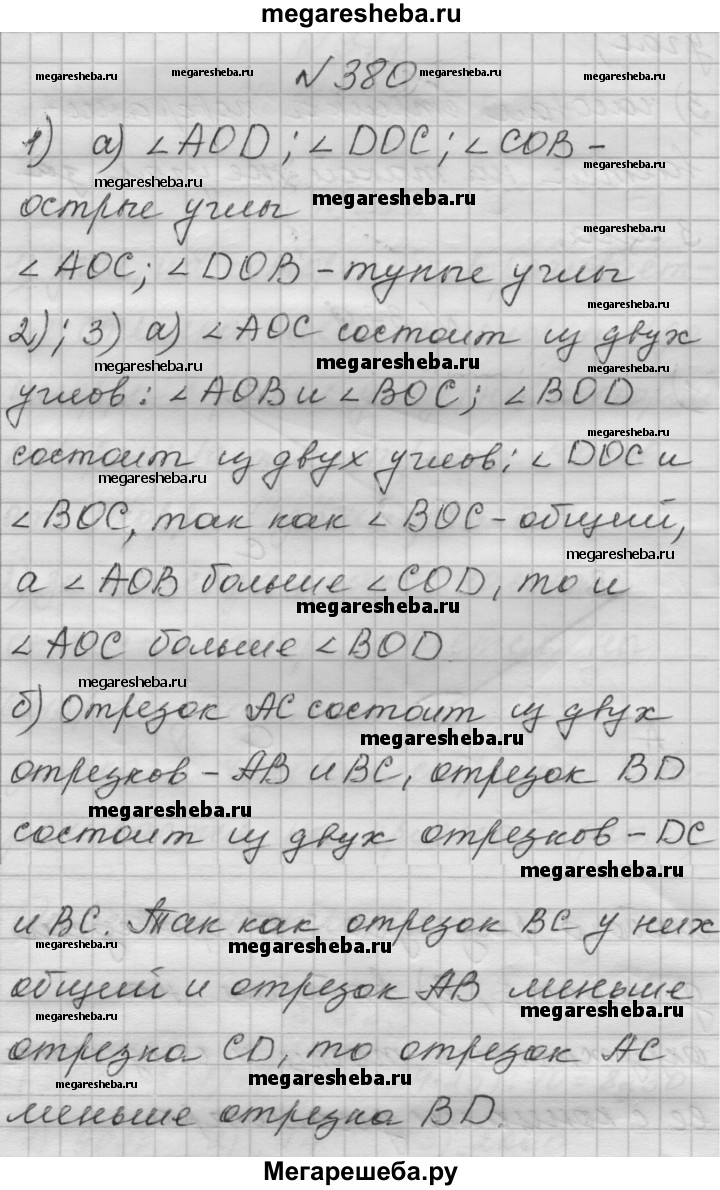 megaresheba.ru
N 380
megaresheba.ru megaresheba.ru megaresheba.ru megaresheba.ru
1) а) ∠AOD; ∠DOC; ∠COB -
megaresheba.ru
острые углы
megaresheba.ru
∠AOC; ∠DOB - тупые углы
megaresheba.ru
2); 3) а) ∠AOC состоит из двух
megaresheba.ru megaresheba.ru
углов: ∠AOB и ∠BOC; ∠BOD
megaresheba.ru
состоит из двух углов: ∠DOC и
megaresheba.ru
∠BOC, так как ∠BOC - общий,
megaresheba.ru
а ∠AOB больше ∠COD, то и
megaresheba.ru
∠AOC больше ∠BOD.
megaresheba.ru
б) Отрезок AC состоит из двух
megaresheba.ru
отрезков - AB и BC, отрезок BD
megaresheba.ru
состоит из двух отрезков - DC
megaresheba.ru
и BC. Так как отрезок BC у них
megaresheba.ru megaresheba.ru megaresheba.ru
общий и отрезок AB меньше
megaresheba.ru megaresheba.ru
отрезка CD, то отрезок AC
megaresheba.ru megaresheba.ru megaresheba.ru
меньше отрезка BD.
Мегарешеба.ру